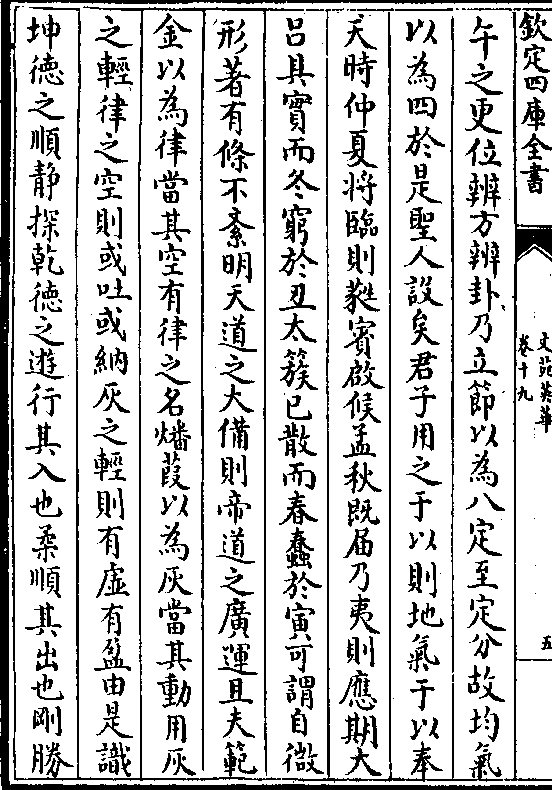 欽定四庫全書
文苑英華
卷十九
五
午之更位辨方辨卦乃立節以為八定至定分故均氣
以為四於是聖人設矣君子用之于以則地氣于以奉
天時仲夏將臨則蕤賓啟候孟秋既届乃夷則應期大
吕具實而冬窮於丑太簇已散而春蠢於寅可謂自微
形著有條不紊明天道之大備則帝道之廣運且夫範
金以為律當其空有律之名燔葭以為灰當其動用灰
之輕律之空則或吐或納灰之輕則有虚有盈由是識
坤德之順静探乾德之遊行其入也柔順其出也剛勝